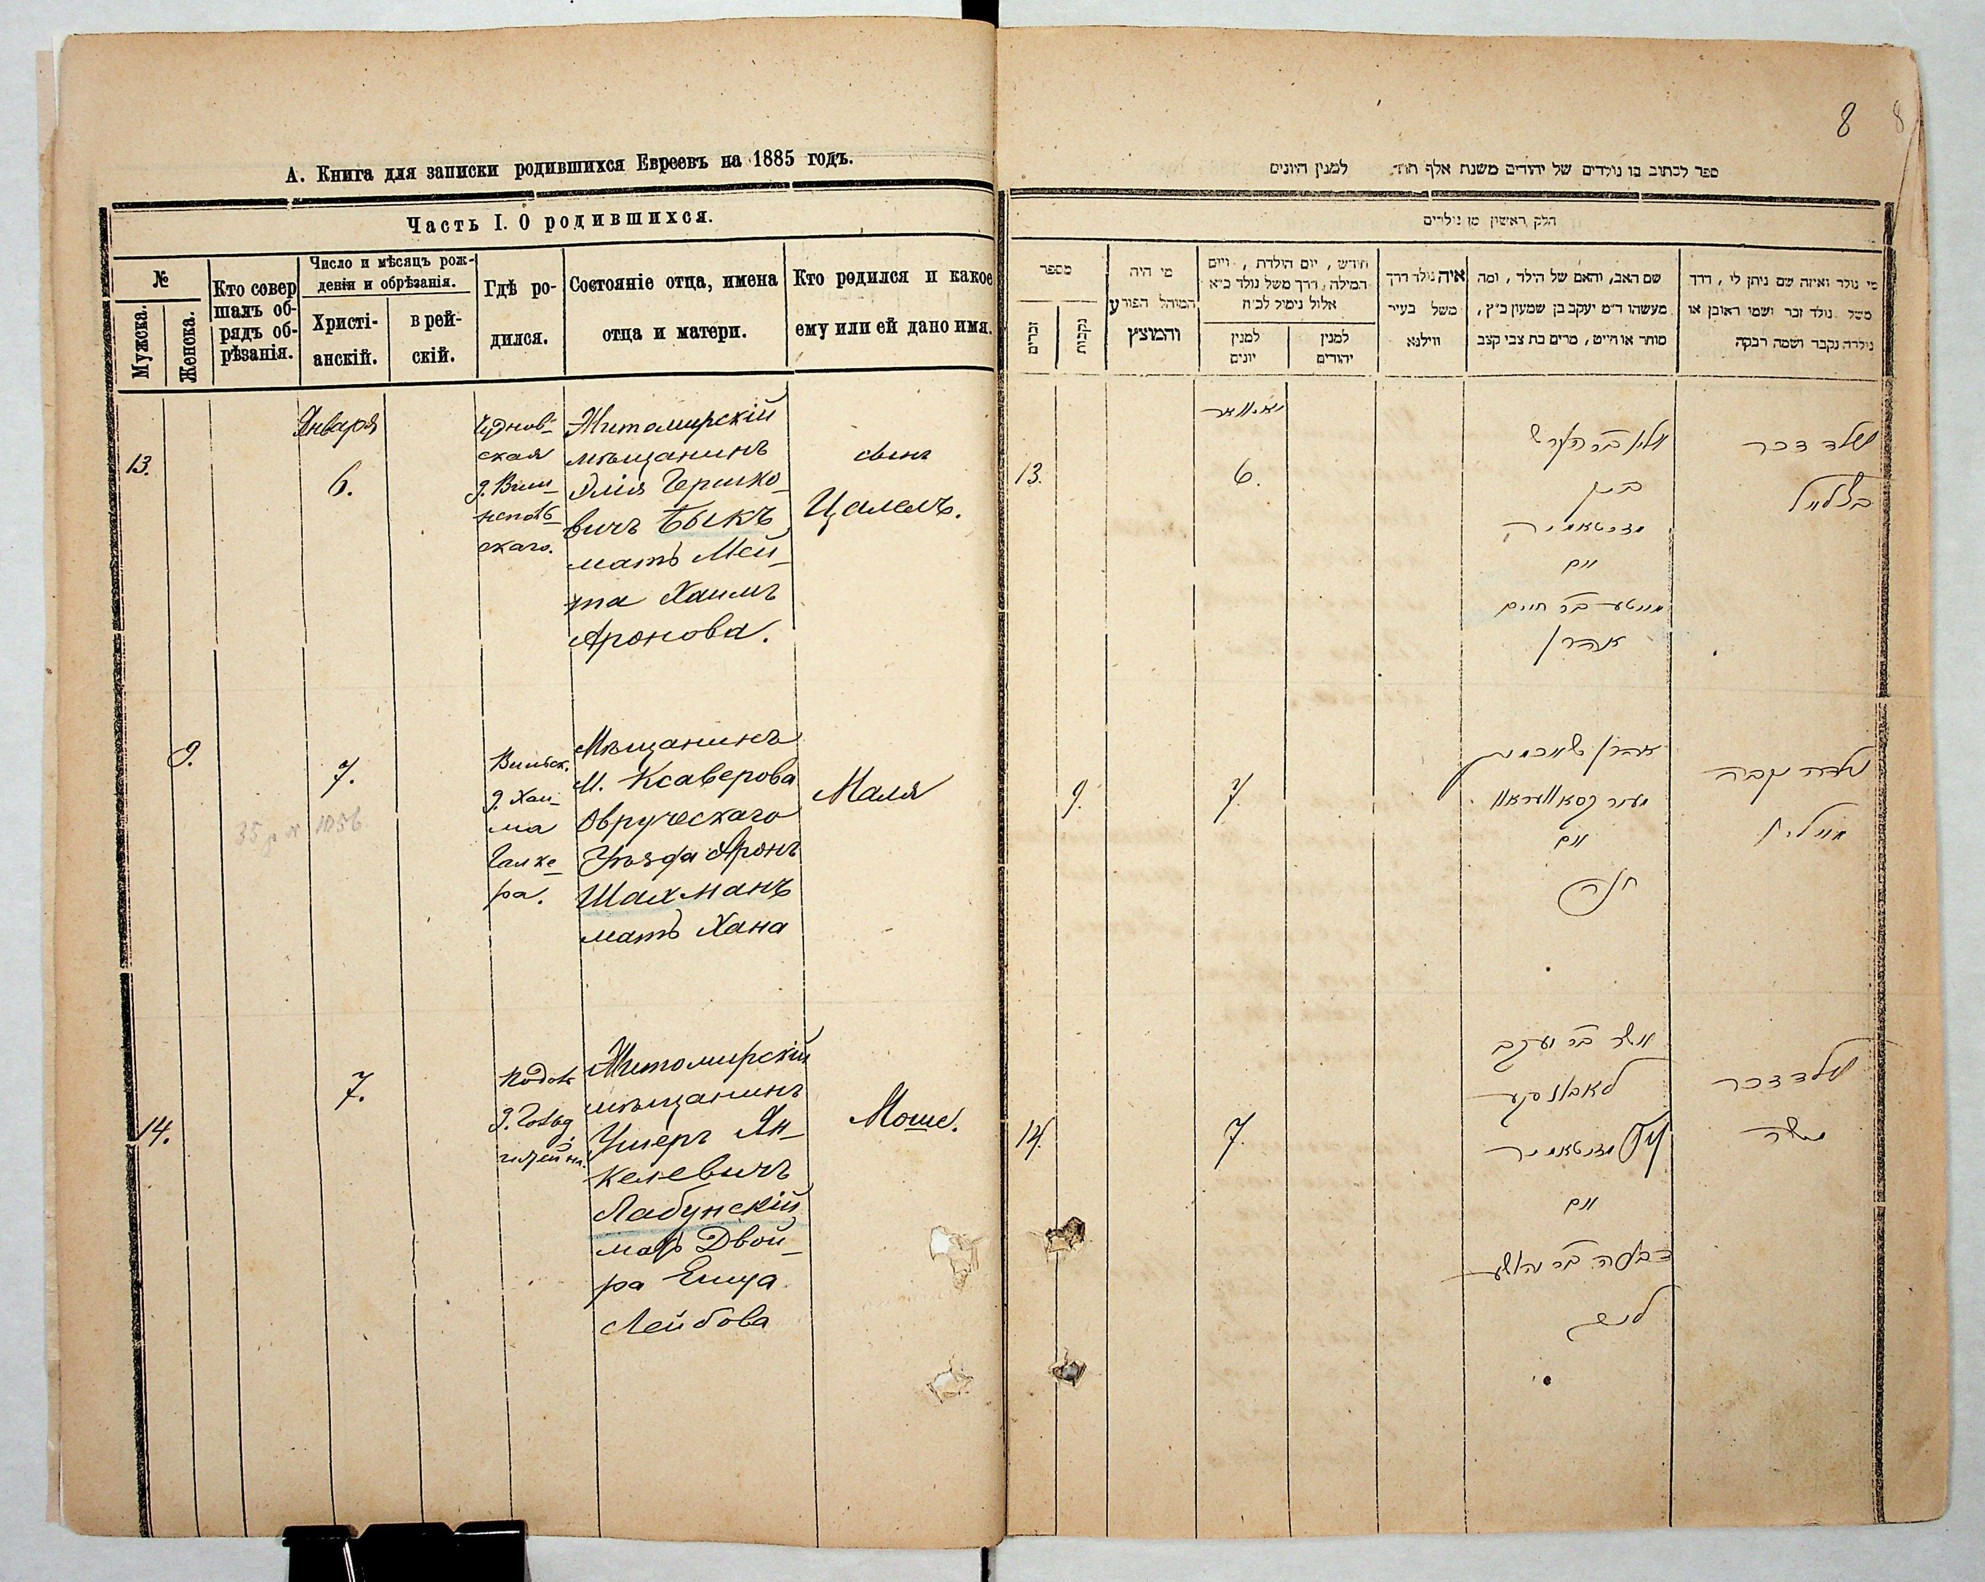 8
8
А. Книга для записки родившихся Евреевъ на 1885 годъ.
Часть I. О родившихся.
№
Мужска.
Женска.
Кто совер
шалъ об-
рядъ об-
рѣзанія.
Число и мѣсяцъ рож-
денія и обрѣзанія.
Христі-
анскій.
в рей-
скій.
Гдѣ ро-
дился.
Состояніе отца, имена
отца и матери.
Кто родился и какое
ему или ей дано имя.
13.
Января
6.
Чуднов-
ская
скаго.
Житомирскій
мѣщанинъ
Элія Гершко-
вичъ Быкъ
мать Мей-
та Хаимъ
Аронова.
сынъ
Цалелъ.
9.
7.
35 р №
Вильск.
д. Хаи-
ма
Галпе-
ра.
Мѣщанинъ
М. Ксаверова
Овручскаго
Уѣзда Аронъ
Шахманъ
мать Хана
Маля
14.
7.
Житомирскій
мѣщанинъ
Ушеръ Ян-
келевичъ
Лабунскій
мать Двой-
ра Ешуа
Лейбова
Моше.
ספר לכתוב בו נולדים של יהודים משנת אלף תתי. למנין היונים
חלק ראשון מן נולדים
מספר
זכרים
נקבות
מי היה
המוהל הפורע
והמוצץ
חודש, יום הולדת, ויום
המילה, דרך משל נולד כ״א
אלול נימול לכ״ח
למנין
יונים
למנין
יהודים
איה נולד דרך
משל בעיר
ווילנא
שם האב, והאם של הילד, ומה
מעשהו ד״מ יעקב בן שמעון כ״ץ,
סוחר או חייט, מרים בת צבי קצב
מי נולד ואיזה שם ניתן לו, דרך
משל נולד זכר ושמו ראובן או
נולדה נקבה ושמה רבקה
13.
יאנוואר
6.
אליי בר הירש
ביק
מזיטאמיר
ואם
מייטע בר חיים
אהרן
נולד זכר
בצלאל
9.
7.
אהרן שאכמאן
מעיר קסאוועראוו
ואם
חנה
נולדה נקבה
14.
7.
אשר בר יעקב
לאבונסקי
מזיטאמיר
ואם
דבורה בר יהושע
ליב
נולד זכר
משה